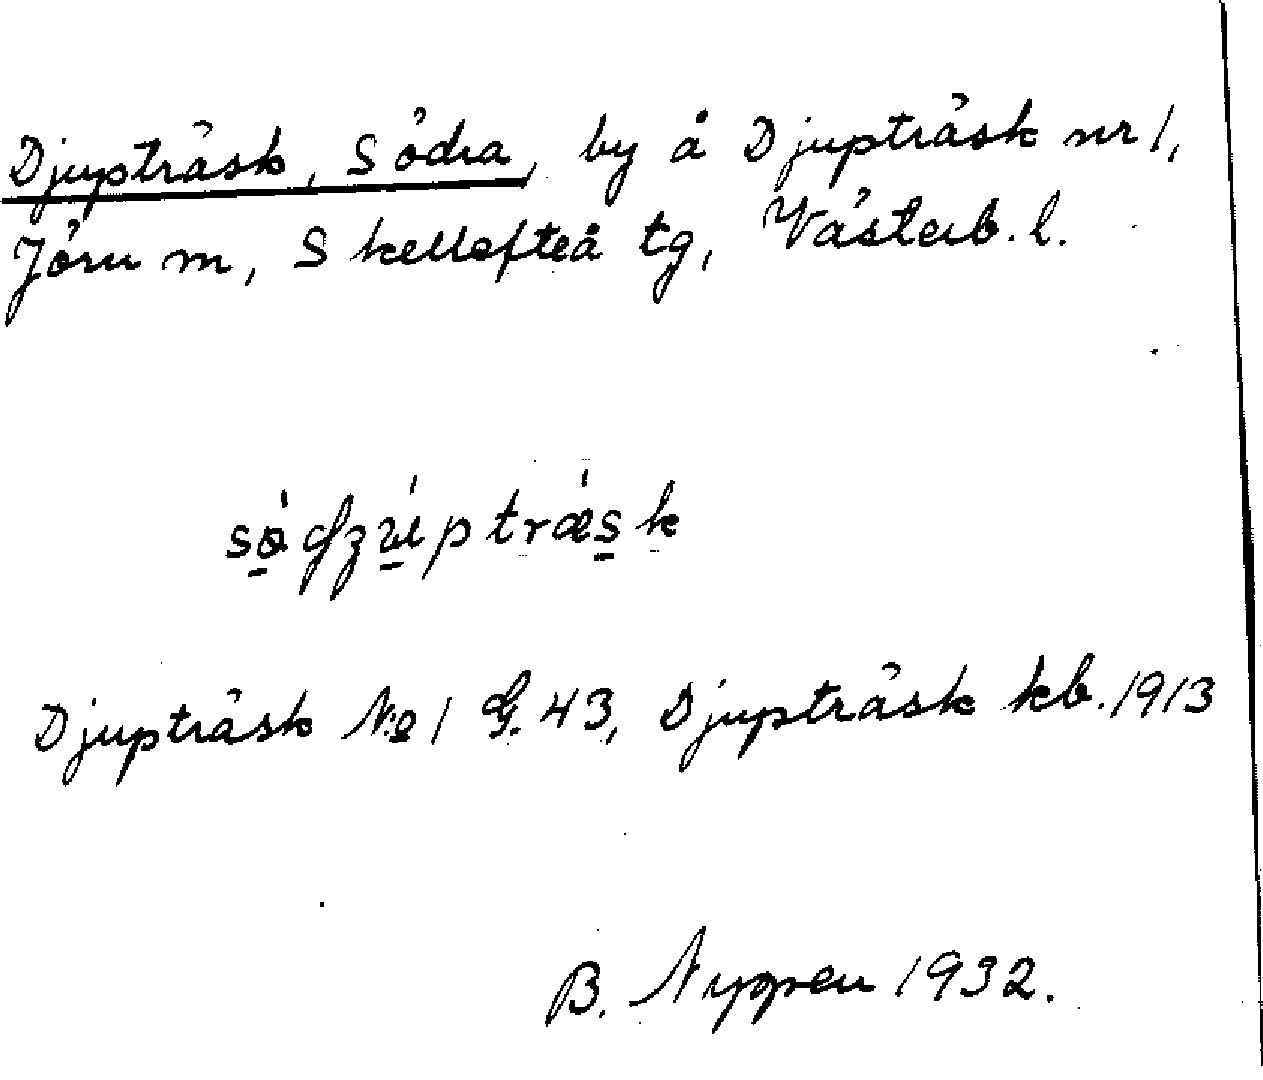 Djupträsk, Södra, by å Djupträsk nr 1,
Jörn m, Skellefteå tg, Västerb. l.
Djupträsk No 1 G. 43, Djupträsk kb. 1913
B. 1932.